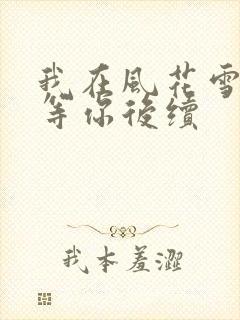 我在風花雪
等你後續
我本羞澀